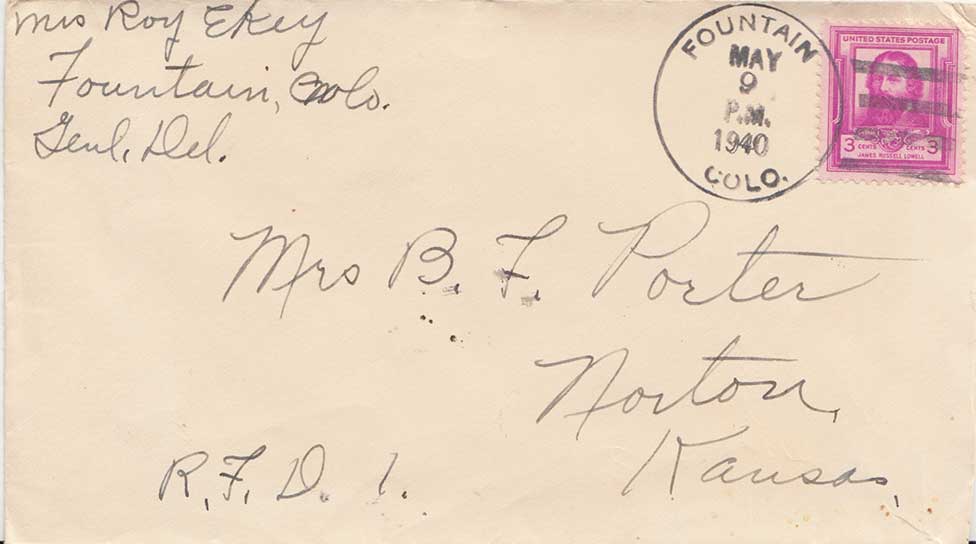 Mrs Roy Ekey
Fountain, Colo.
Genl. Del.
FOUNTAIN
MAY
9
P.M.
1940
COLO.
UNITED STATES POSTAGE
3 CENTS CENTS 3
JAMES RUSSELL LOWELL
Mrs B. F. Porter
Norton,
Kansas,
R.F.D. 1.